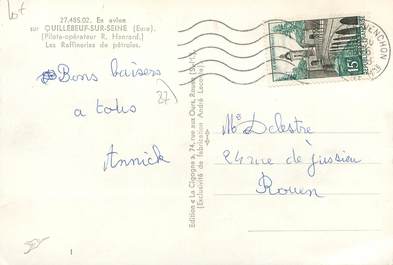 Lot
27.485.02. En avion
sur QUILLEBEUF-SUR-SEINE (Eure).
(Pilote-opérateur R. Henrard.)
Les Raffineries de pétroles.
Bons baisers
à tous
27)
Annick
Edition « La Cigogne », 74, rue aux Ours, Rouen (S.-M.)
(Exclusivité de fabrication André Leconte)
15F
Mr Delestre
24 rue de Jussieu
Rouen
1